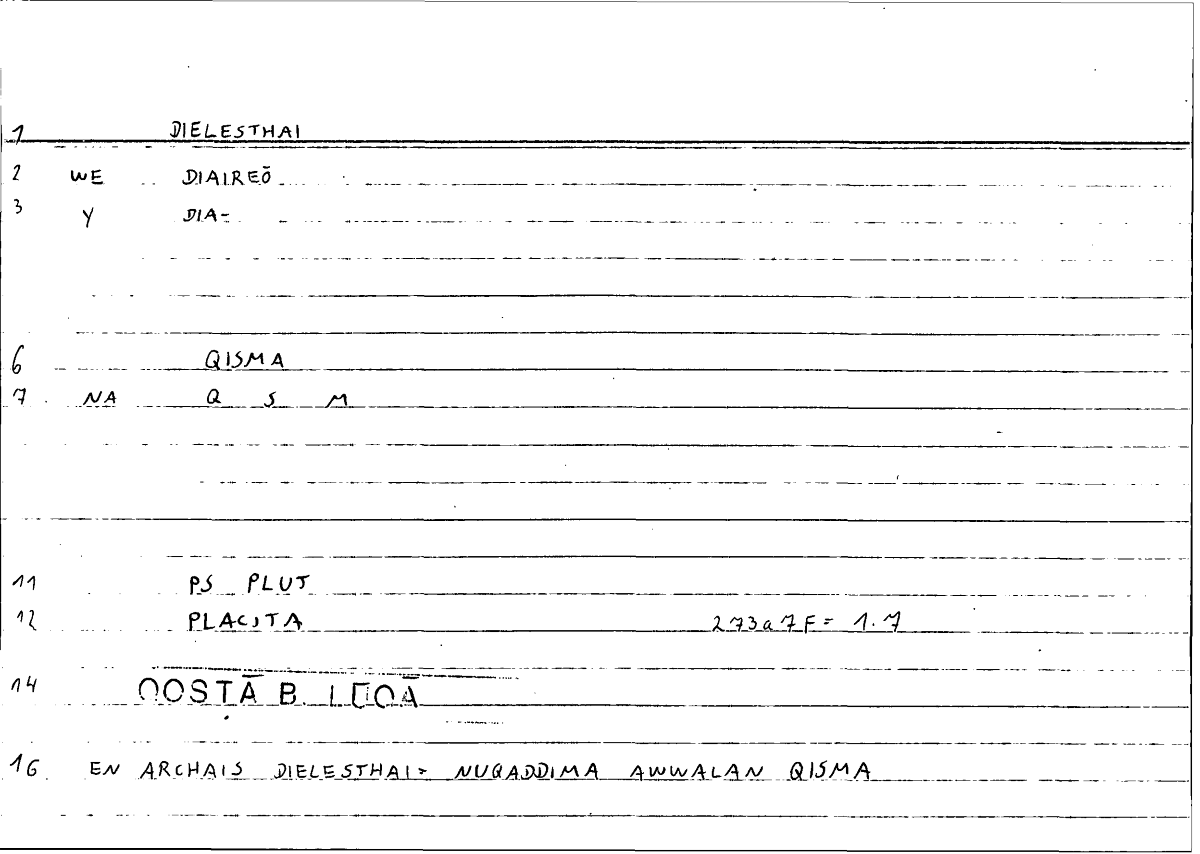 1 DIELESTHAI
2 WE DIAIREŌ
3 Y DIA-
6 QISMA
7 NA Q S M
11 PS PLUT
12 PLACITA 273a7F= 1.7
14 QOSṬĀ B. LŪQĀ
16 EN ARCHAIS DIELESTHAI= NUQADDIMA AWWALAN QISMA